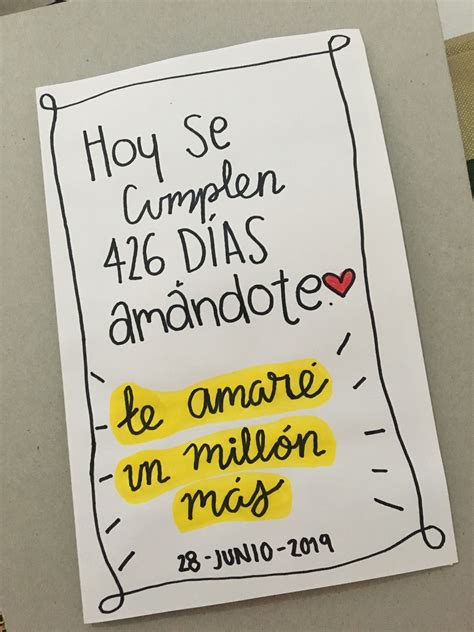 Hoy se
cumplen
426 DÍAS
amándote.
te amaré
un millón
más
28-JUNIO-2019